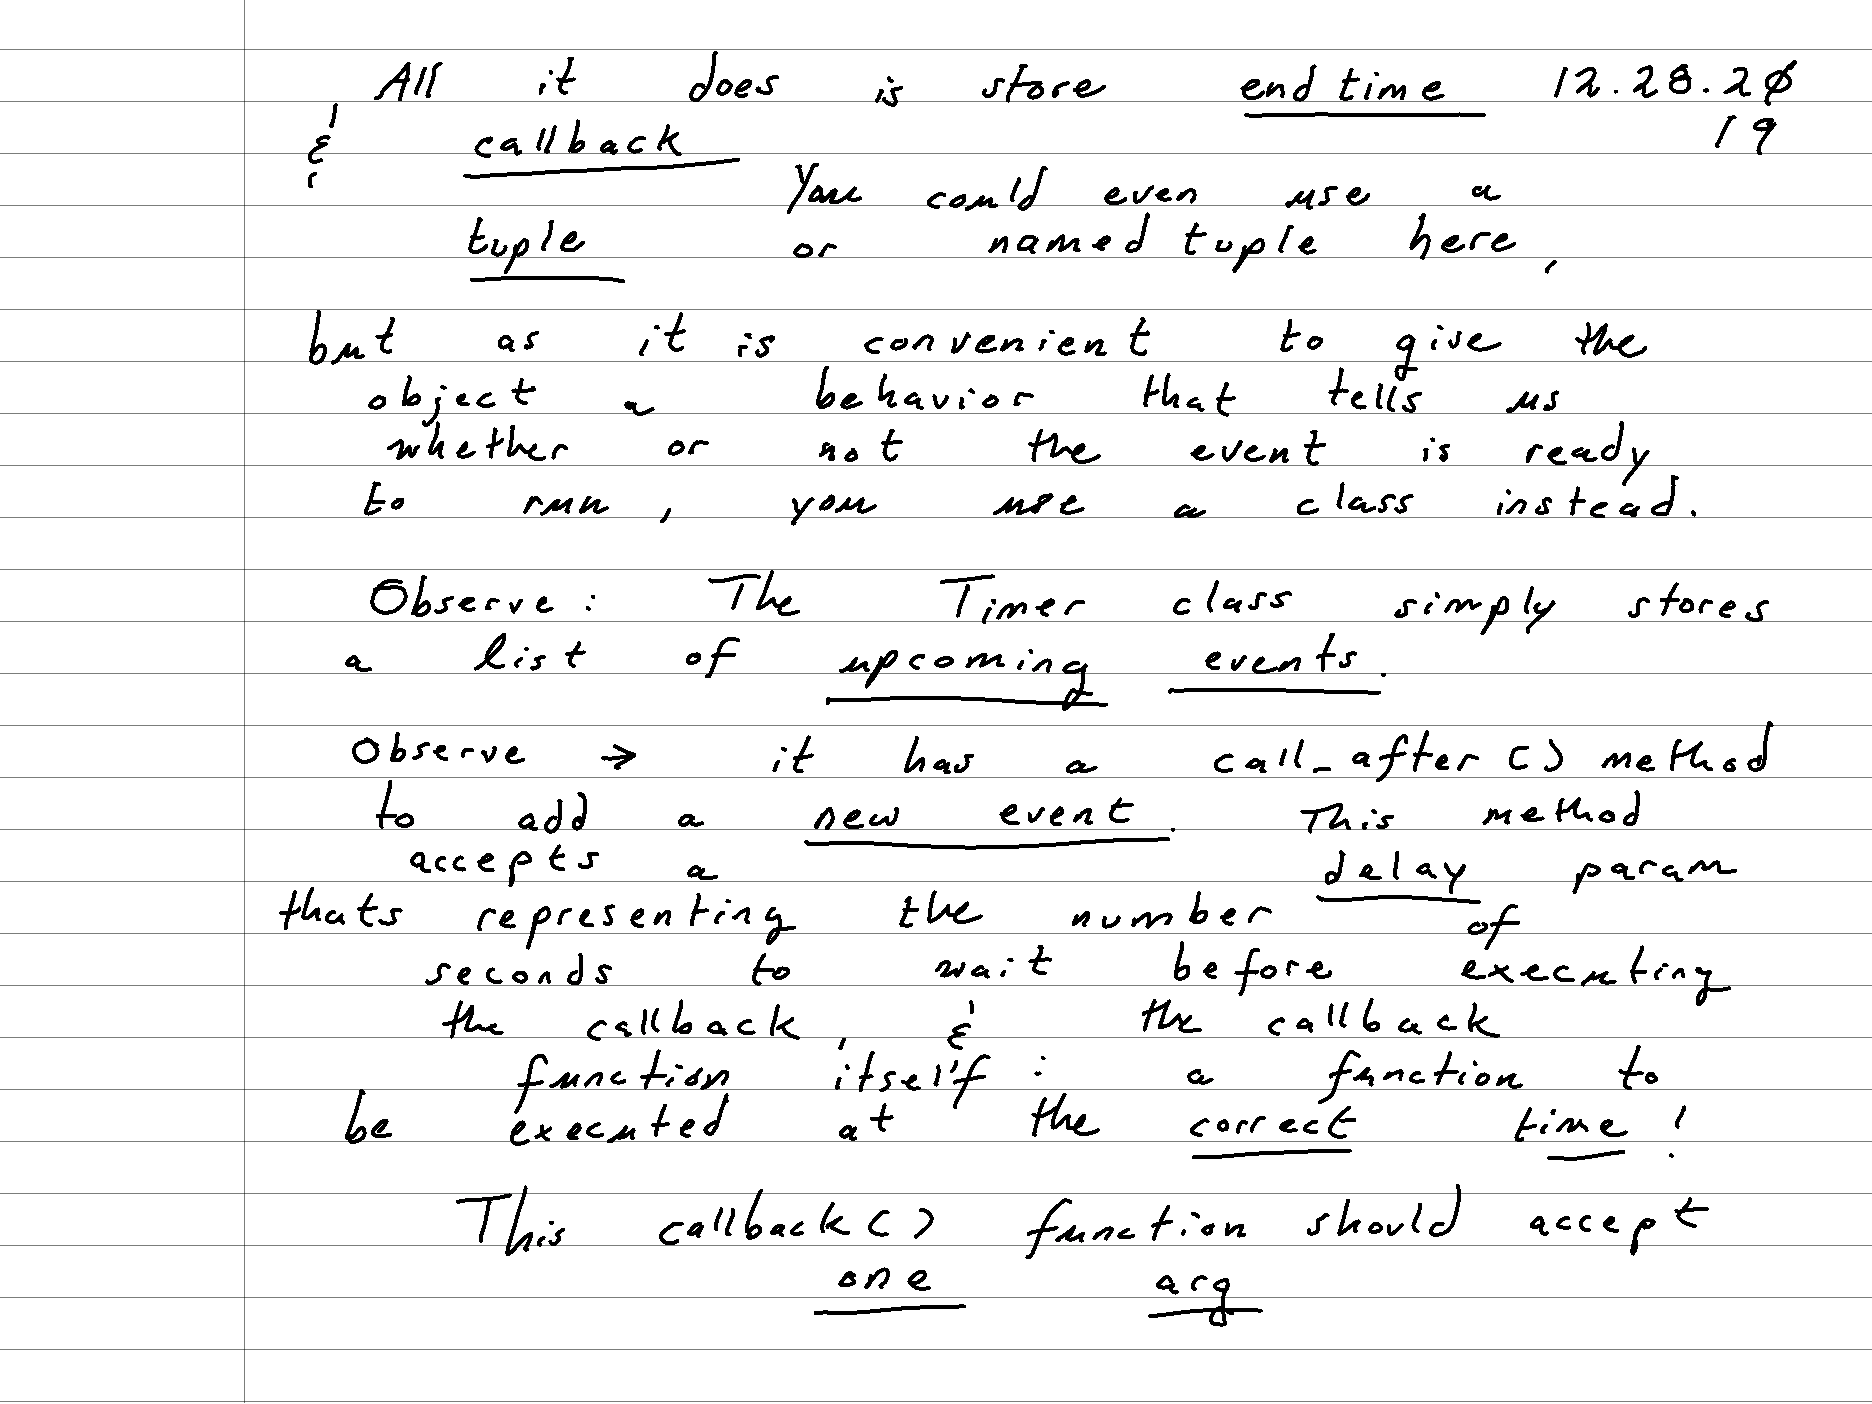 All it does is store end time 12.28.20
& callback 19
You could even use a
tuple or named tuple here,
but as it is convenient to give the
object a behavior that tells us
whether or not the event is ready
to run, you use a class instead.
Observe: The Timer class simply stores
a list of upcoming events.
Observe → it has a call_after() method
to add a new event. This method
accepts a delay param
thats representing the number of
seconds to wait before executing
the callback, & the callback
function itself: a function to
be executed at the correct time!
This callback() function should accept
one arg